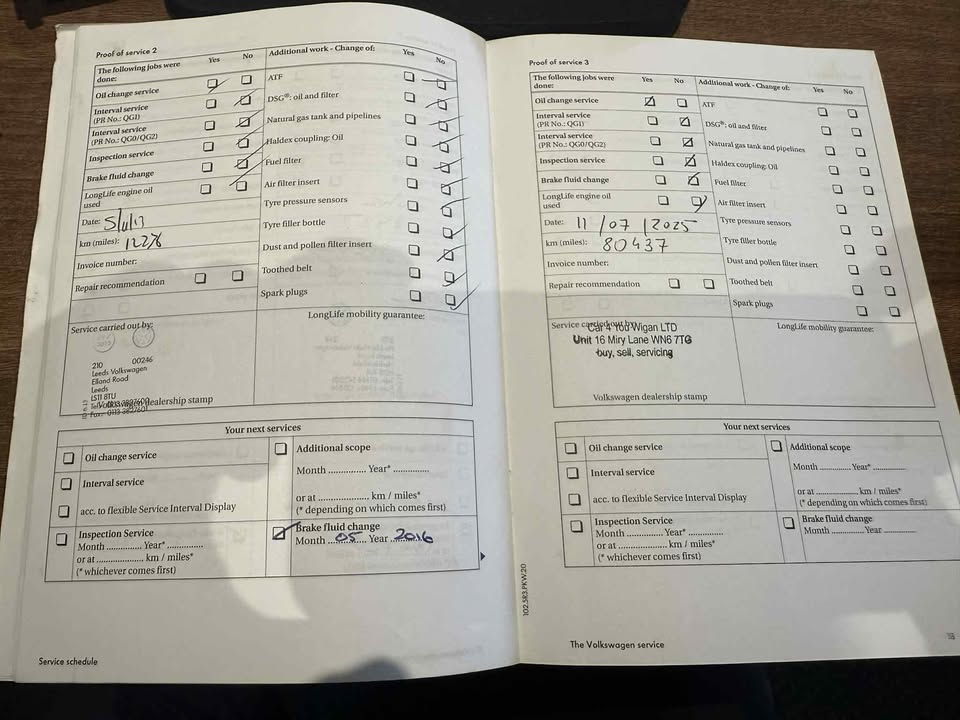 Proof of service 2
The following jobs were done: Yes No
Oil change service
Interval service (PR No.: QG1)
Interval service (PR No.: QG0/QG2)
Inspection service
Brake fluid change
LongLife engine oil used
Date:
km (miles):
Invoice number:
Repair recommendation
Additional work - Change of: Yes No
ATF
DSG®: oil and filter
Natural gas tank and pipelines
Haldex coupling: Oil
Fuel filter
Air filter insert
Tyre pressure sensors
Tyre filler bottle
Dust and pollen filter insert
Toothed belt
Spark plugs
Service carried out by:
210 00246
Leeds Volkswagen
Elland Road
Leeds
LS11 8TU
Volkswagen dealership stamp
LongLife mobility guarantee:
Your next services
Oil change service
Interval service
acc. to flexible Service Interval Display
Inspection Service
Month ............ Year* ............
or at ............ km / miles*
(* whichever comes first)
Additional scope
Month ............ Year* ............
or at ............ km / miles*
(* depending on which comes first)
Brake fluid change
Month 05 Year 2016
Service schedule
Proof of service 3
The following jobs were done: Yes No
Oil change service
Interval service (PR No.: QG1)
Interval service (PR No.: QG0/QG2)
Inspection service
Brake fluid change
LongLife engine oil used
Date: 11/07/2025
km (miles): 80437
Invoice number:
Repair recommendation
Additional work - Change of: Yes No
ATF
DSG®: oil and filter
Natural gas tank and pipelines
Haldex coupling: Oil
Fuel filter
Air filter insert
Tyre pressure sensors
Tyre filler bottle
Dust and pollen filter insert
Toothed belt
Spark plugs
Service carried out by:
Car 4 You Wigan LTD
Unit 16 Miry Lane WN6 7TG
buy, sell, servicing
Volkswagen dealership stamp
LongLife mobility guarantee:
Your next services
Oil change service
Interval service
acc. to flexible Service Interval Display
Inspection Service
Month ............ Year* ............
or at ............ km / miles*
(* whichever comes first)
Additional scope
Month ............ Year* ............
or at ............ km / miles*
(* depending on which comes first)
Brake fluid change
Month ............ Year ............
102.5R3.PKW.20
The Volkswagen service